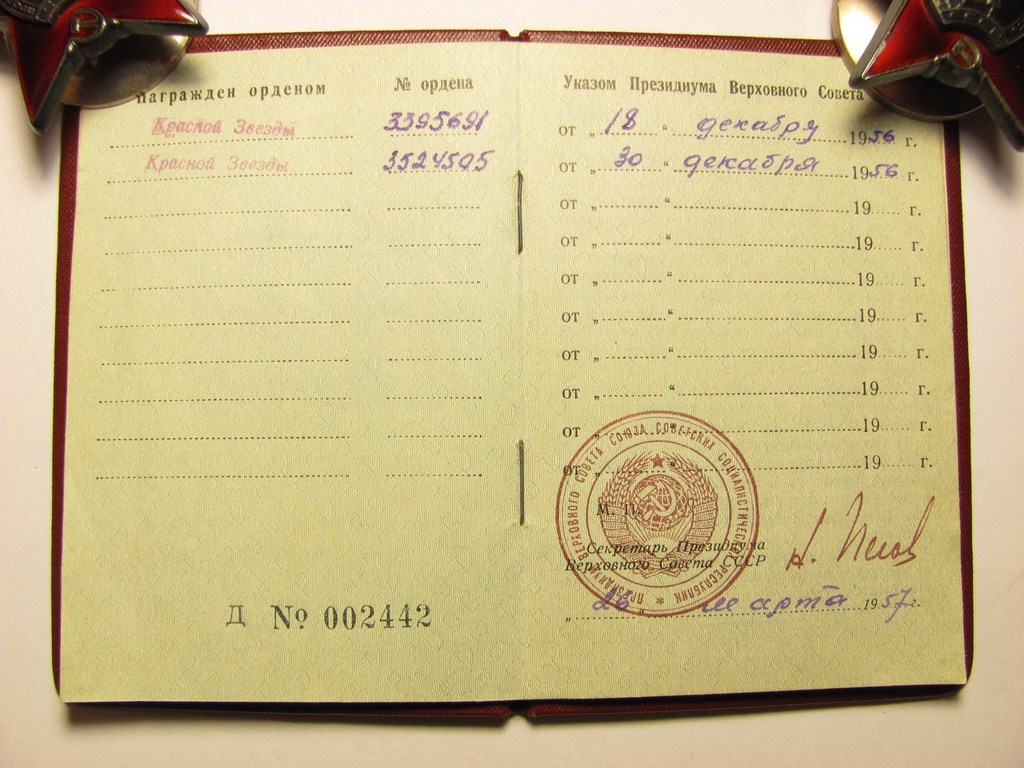 Награжден орденом № ордена
Красной Звезды 3395691
Красной Звезды 3524595
Д № 002442
Указом Президиума Верховного Совета
от „ 18 “ декабря 1956 г.
от „ 30 “ декабря 1956 г.
от „ “ 19 г.
от „ “ 19 г.
от „ “ 19 г.
от „ “ 19 г.
от „ “ 19 г.
от „ “ 19 г.
от „ “ 19 г.
от „ “ 19 г.
ПРЕЗИДИУМ ВЕРХОВНОГО СОВЕТА СОЮЗА СОВЕТСКИХ СОЦИАЛИСТИЧЕСКИХ РЕСПУБЛИК
М. П.
Секретарь Президиума
Верховного Совета СССР
„ 26 “ марта 1957 г.